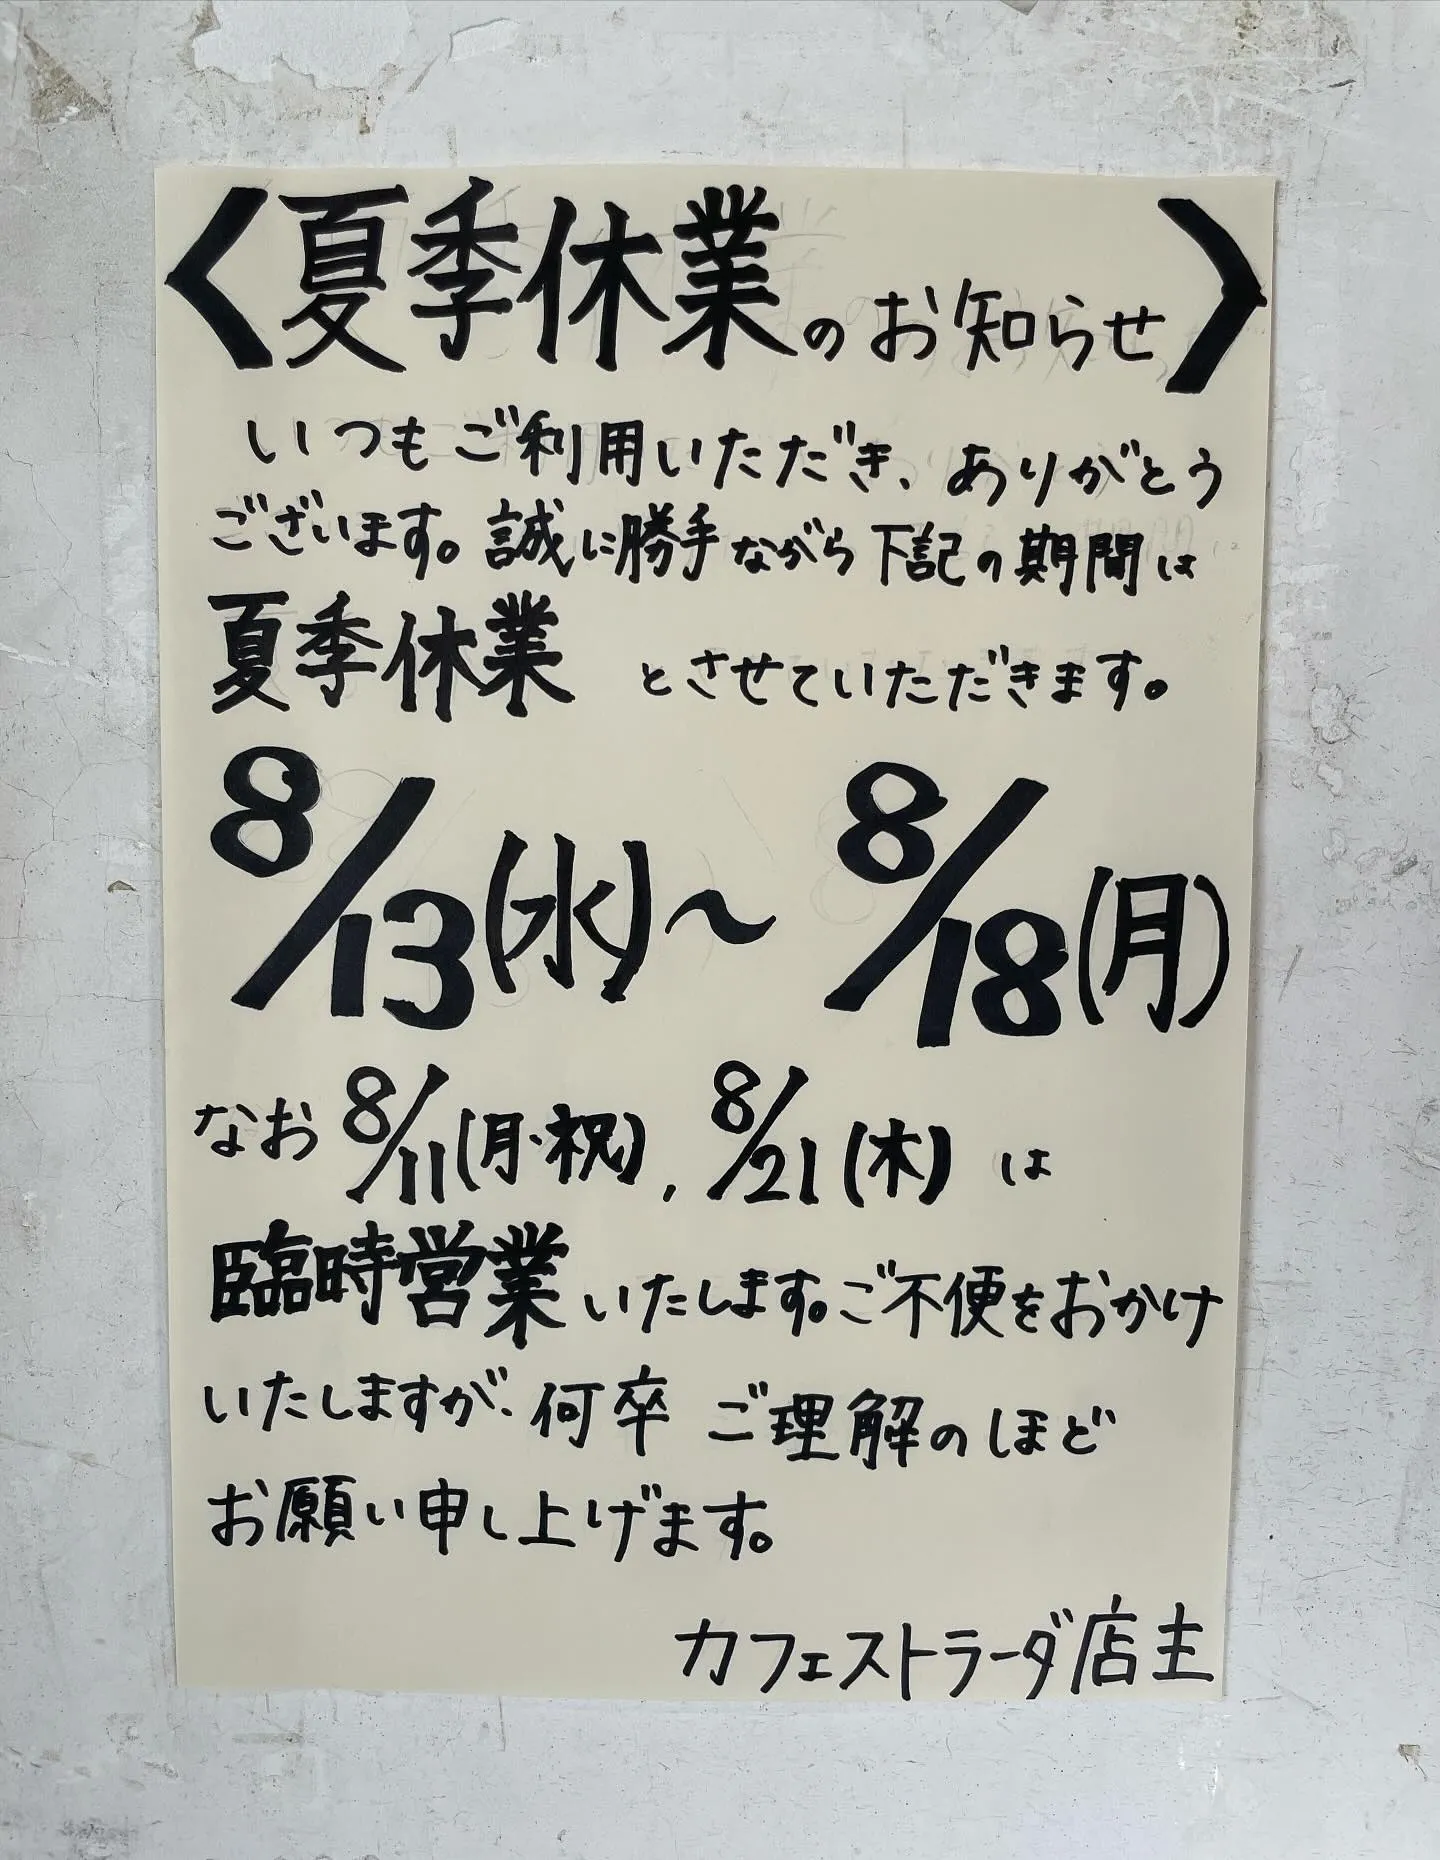 〈夏季休業のお知らせ〉
いつもご利用いただき、ありがとう
ございます。誠に勝手ながら下記の期間は
夏季休業 とさせていただきます。
8/13(水)～8/18(月)
なお 8/11(月・祝), 8/21(木) は
臨時営業いたします。ご不便をおかけ
いたしますが、何卒 ご理解のほど
お願い申し上げます。
カフェストラーダ店主